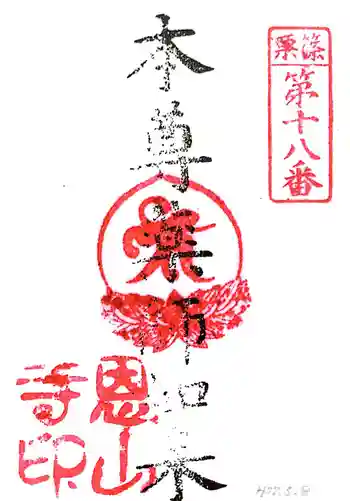 篠栗
第十八番
本尊薬師如来
恩山
寺印